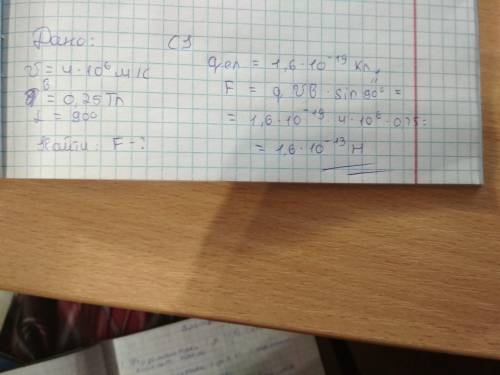 Дано: СЗ
v = 4·10⁶ м/с
B = 0,25 Тл
α = 90°
Найти: F - ?
qэл = 1,6·10⁻¹⁹ Кл,
F = q v B · sin 90° =
= 1,6·10⁻¹⁹ · 4·10⁶ · 0,25 =
= 1,6·10⁻¹³ Н